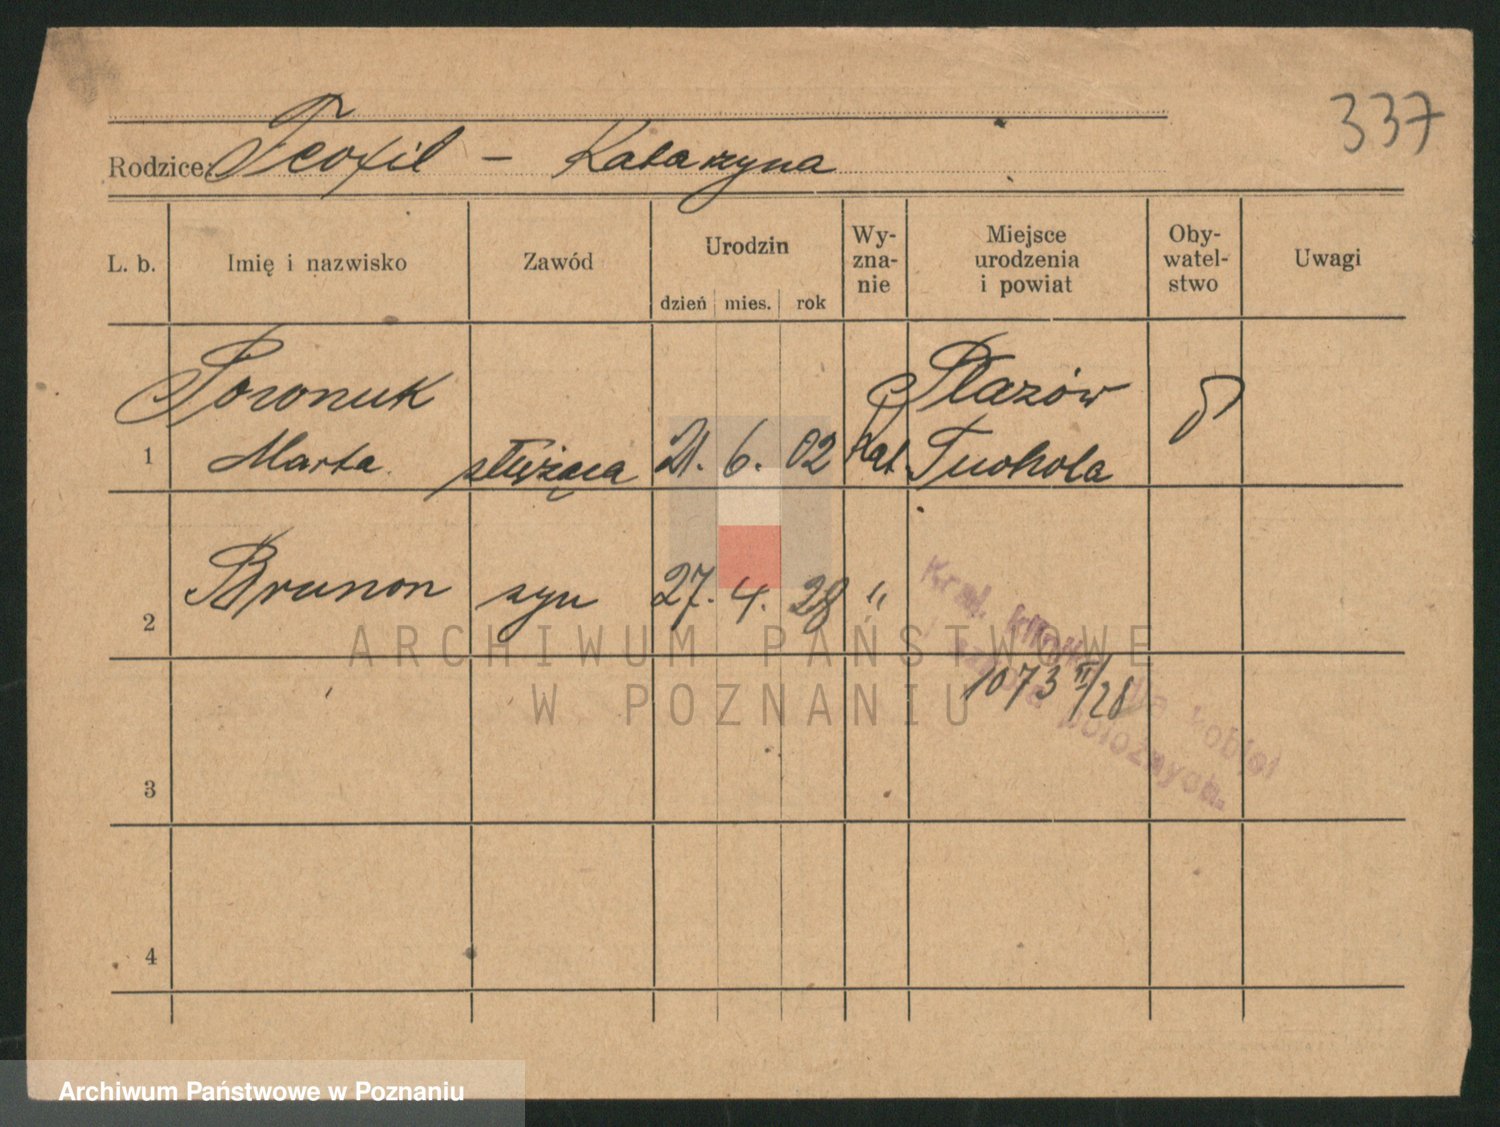 337
Rodzice: Teofil – Katarzyna
L. b. Imię i nazwisko Zawód Urodzin dzień mies. rok Wy-zna-nie Miejsce urodzenia i powiat Oby-watel-stwo Uwagi
Marta służąca 21. 6. 02 kat. Płazów
1 Tuchola
2 Brunon syn 27. 4. 28 "
Kraj. klinika dla kobiet
i szkoła położnych.
1073 II/28
3
4
ARCHIWUM PAŃSTWOWE
W POZNANIU
Archiwum Państwowe w Poznaniu